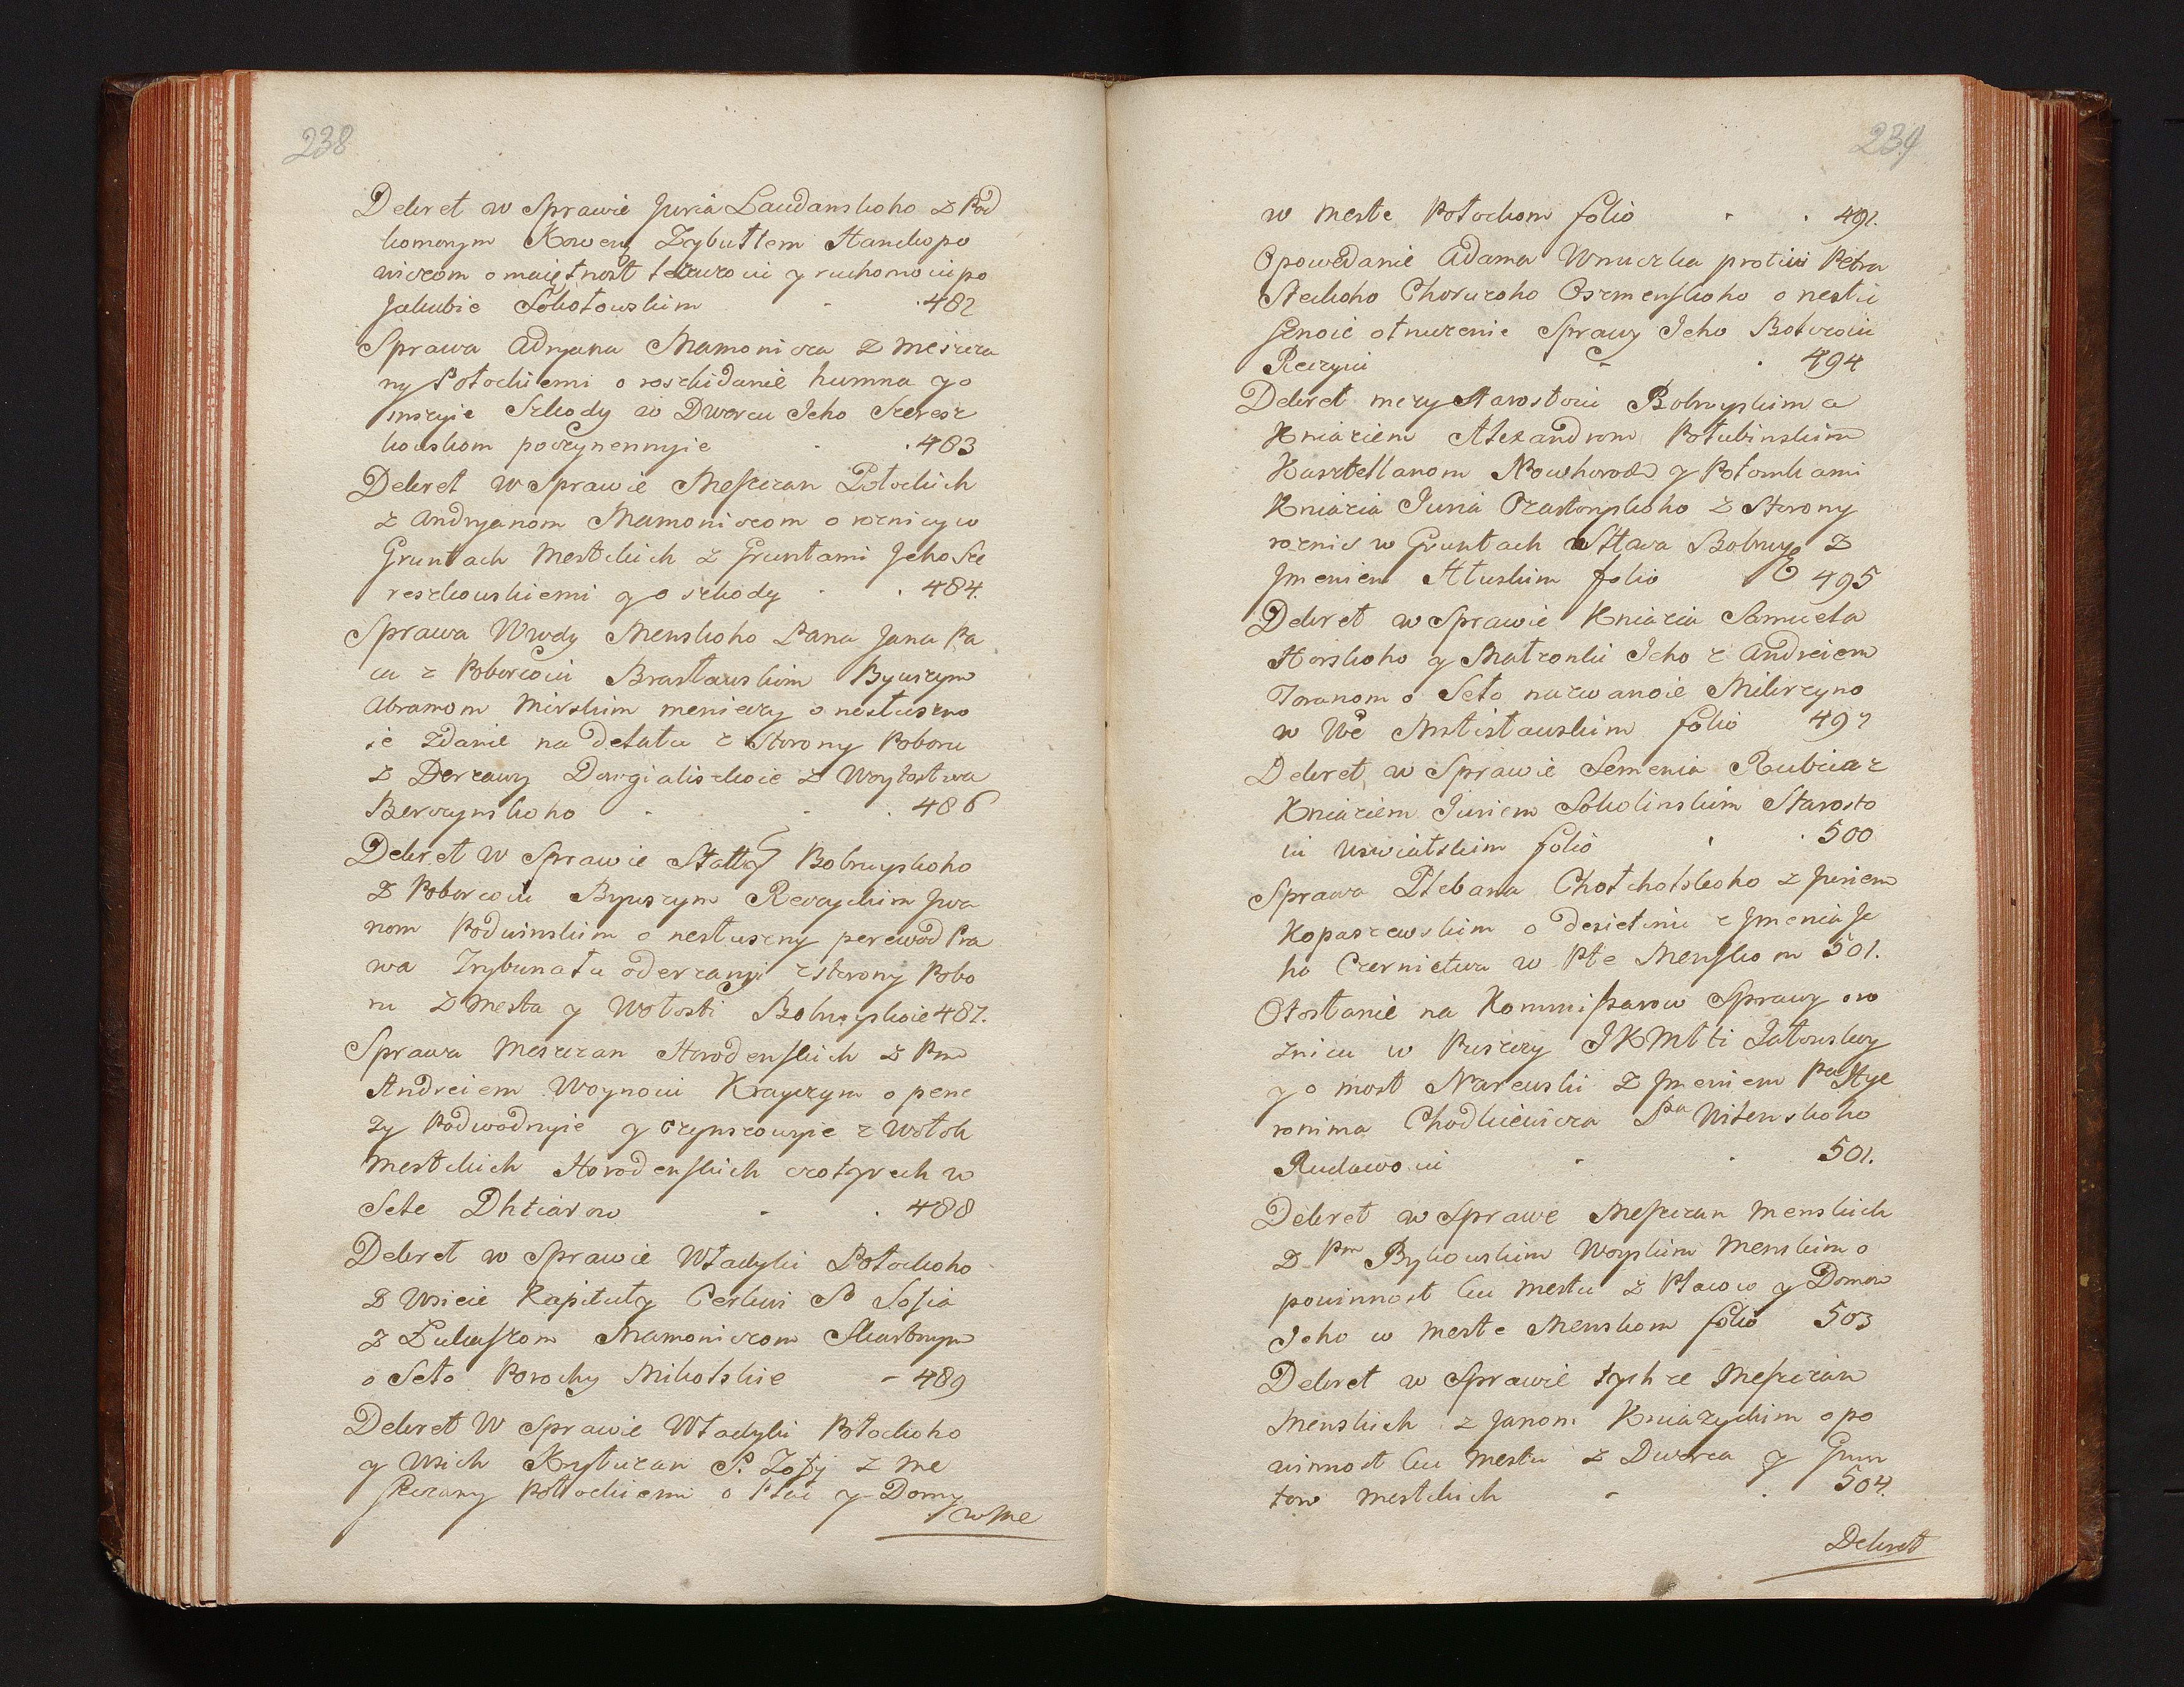 238
Dekret w Sprawie Juria Laudanskoho z Pod
komorym Kowen Zybułtem Stankiepo
wiczom o maiętnost łeżaczoiu y ruchomoiu po
Jakubie Sokołowskim 482
Sprawa Adryana Mamonicza z meszcza
ny Połockiemi o roskidanie humna y o
inszyie Szkody w Dworcu Jeho Szeresz
kowskom poczynennyie 483
Dekret w Sprawie Meszczan Połockich
z Andryanom Mamoniczom o roznicy w
Gruntach Mestckich z Gruntami Jeho Sze
reszkowskiemi y o szkody 484.
Sprawa Wwody Menskoho Pana Jana Pa
ca z Poborcoiu Brasławskim Bywszym
Abramom Mirskim meniaczy o nesłuszno
ie zdanie na Delatu z Storony Poboru
z Derżawy Dowgialiszkoie z Woytostwa
Berczynskoho 486
Dekret w Sprawie Statty Bobruyskoho
z Poborcoiu Bywszym Reczyckim Jwa
nom Podwinskim o nesłuszny perewod Pra
wa Trybunału oderżanyi z storony Pobo
ru z Mesta y Wołosti Bobruyskoie 487.
Sprawa Meszczan Horodenskich z Pnm
Andreiem Woynoiu Krayczym o pene
zy Podwodnyie y czynszowyie z Wołok
Mestckich Horodenskich czotyrech w
Sele Dhtiarow 488
Dekret w Sprawie Władyki Połockoho
z Wsieie Kapituły Cerkwi S Sofia
z Łukaszom Mamoniczom Skarbnym
o Seło Porochy Mikolskie 489
Dekret w Sprawie Władyki Połockoho
y Wsich Kryłuzan S. Zofij z me
szczany Połłockiemi o Plac y Domy
w Me
239
w meste Połockom folio 491.
Opowedanie Adama Wnuczka protiw Petra
Steckoho Choruzoho Oszmenskoho o nestu
sznoie otnuzenie Sprawy Jeho Botwoiu
Reczyiu 494
Dekret mezy Starostoiu Bobruyskim a
Kniaziem Alexandrom Połubinskim
Kasztellanom Nowhorod y Potomkami
Kniazia Juria Czartoryskoho z Storony
roznic w Gruntach wStawa Bobruy z
Jmeniem Hłuskim folio 495
Dekret w Sprawie Kniazia Samueła
Horskoho y Małzonki Jeho z Andreiem
Toranom o Seło nazwanoie Milirzyno
w We Mstisławskim folio 497
Dekret w Sprawie Semenia Rubcia z
Kniaziem Juriem Sokolinskim Starosto
iu Uswiatskim folio 500
Sprawa Plebana Chotchołskoho z Juriem
Kopaszewskim o desietinu z Jmenia Je
ho Czernietwa w Pte Menskom 501.
Otosłanie na Kommissarow Sprawy o ro
znicu w Puszczy JKMłti Jałowskoy
y o most Narewski z Jmeniem Pa Hye
ronima Chodkiewicza Pna Wilenskoho
Rudawoiu 501.
Dekret w Sprawe Meszczan Menskich
z Pnm Bykowskim Woyskim Menskim o
powinnost ku Mestu z Płacow y Domow
Jeho w meste Menskom folio 503
Dekret w Sprawie tych ze Meszczan
Menskich z Janom Kniazyckim o po
winnost ku Mestu z Dworca y Grun
tow mestckich 504.
Dekret